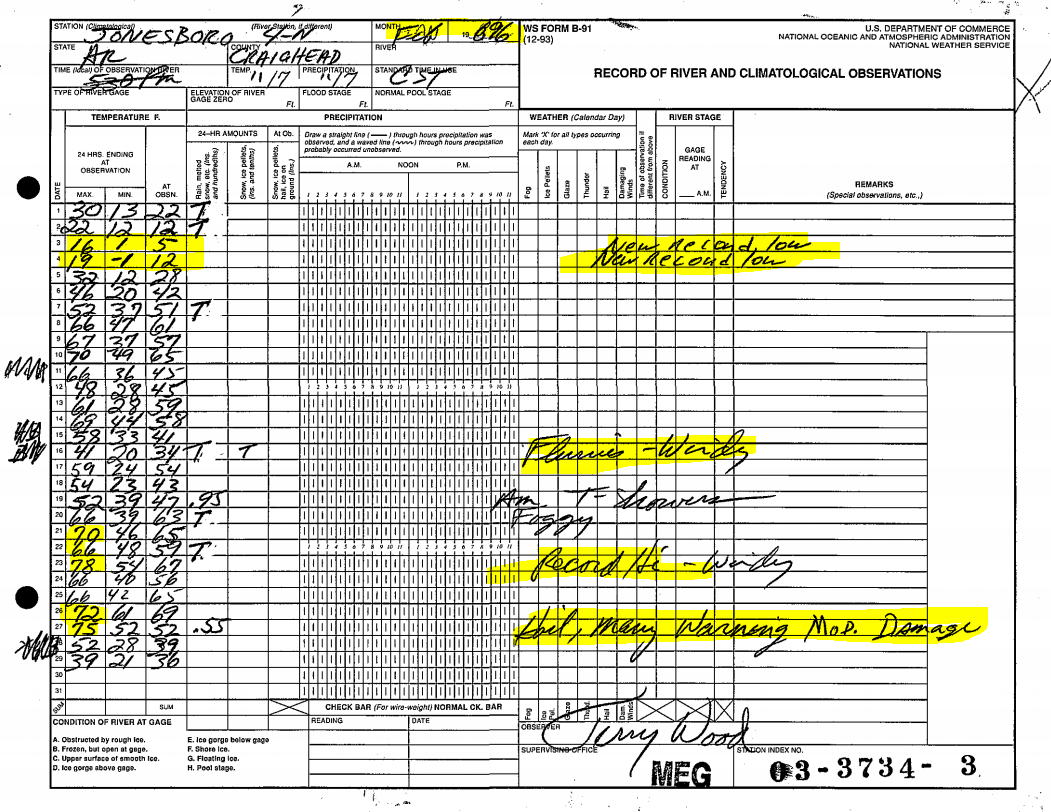 STATION (Climatological) (River Station, if different) MONTH WS FORM B-91 U.S. DEPARTMENT OF COMMERCE
JONESBORO 4-N FEB 1996 (12-93) NATIONAL OCEANIC AND ATMOSPHERIC ADMINISTRATION
STATE COUNTY RIVER NATIONAL WEATHER SERVICE
AR CRAIGHEAD
TIME (local) OF OBSERVATION RIVER TEMP. PRECIPITATION STANDARD TIME IN USE RECORD OF RIVER AND CLIMATOLOGICAL OBSERVATIONS
530 Pm 11/7 11/7 CST
TYPE OF RIVER GAGE ELEVATION OF RIVER GAGE ZERO Ft. FLOOD STAGE Ft. NORMAL POOL STAGE Ft.
TEMPERATURE F. PRECIPITATION WEATHER (Calendar Day) RIVER STAGE
24 HRS. ENDING AT OBSERVATION
24-HR AMOUNTS At Ob.
Draw a straight line (——) through hours precipitation was observed, and a waved line (~~~~) through hours precipitation probably occurred unobserved.
Mark 'X' for all types occurring each day.
Rain, melted snow, etc. (Ins. and hundredths)
Snow, ice pellets, (Ins. and tenths)
Snow, ice pellets, hail, ice on ground (Ins.)
A.M. NOON P.M.
Fog Ice Pellets Glaze Thunder Hail Damaging Winds
Time of observation if different from above
CONDITION GAGE READING AT A.M. TENDENCY
REMARKS
(Special observations, etc.,)
DATE MAX. MIN. AT OBSN.
1 2 3 4 5 6 7 8 9 10 11 1 2 3 4 5 6 7 8 9 10 11
1 30 13 22 T
2 22 12 12 T
3 16 1 5 New Record Low
4 19 -1 12 New Record Low
5 32 12 28
6 46 20 42
7 52 37 51 T
8 66 47 61
9 67 37 57
10 70 49 65
11 66 36 45
12 48 28 45
13 61 28 59
14 69 44 58
15 58 33 41
16 41 20 34 T T Flurries - Windy
17 59 24 54
18 54 23 43
19 52 39 47 .95 Am T-Showers
20 66 39 63 T Foggy
21 70 46 65
22 66 48 59 T
23 78 54 67 Record Hi - Windy
24 66 40 56
25 66 42 65
26 72 61 69
27 75 52 52 .55 Hail, many Warning Mod. Damage
28 52 28 39
29 39 21 36
30
31
SUM SUM CHECK BAR (For wire-weight) NORMAL CK. BAR
Fog Ice Pel. Glaze Thund. Hail Dam. Winds
CONDITION OF RIVER AT GAGE READING DATE OBSERVER
Terry Wood
A. Obstructed by rough ice. E. Ice gorge below gage
B. Frozen, but open at gage. F. Shore ice. SUPERVISING OFFICE STATION INDEX NO.
C. Upper surface of smooth ice. G. Floating ice.
D. Ice gorge above gage. H. Pool stage.
MEG 03-3734-3